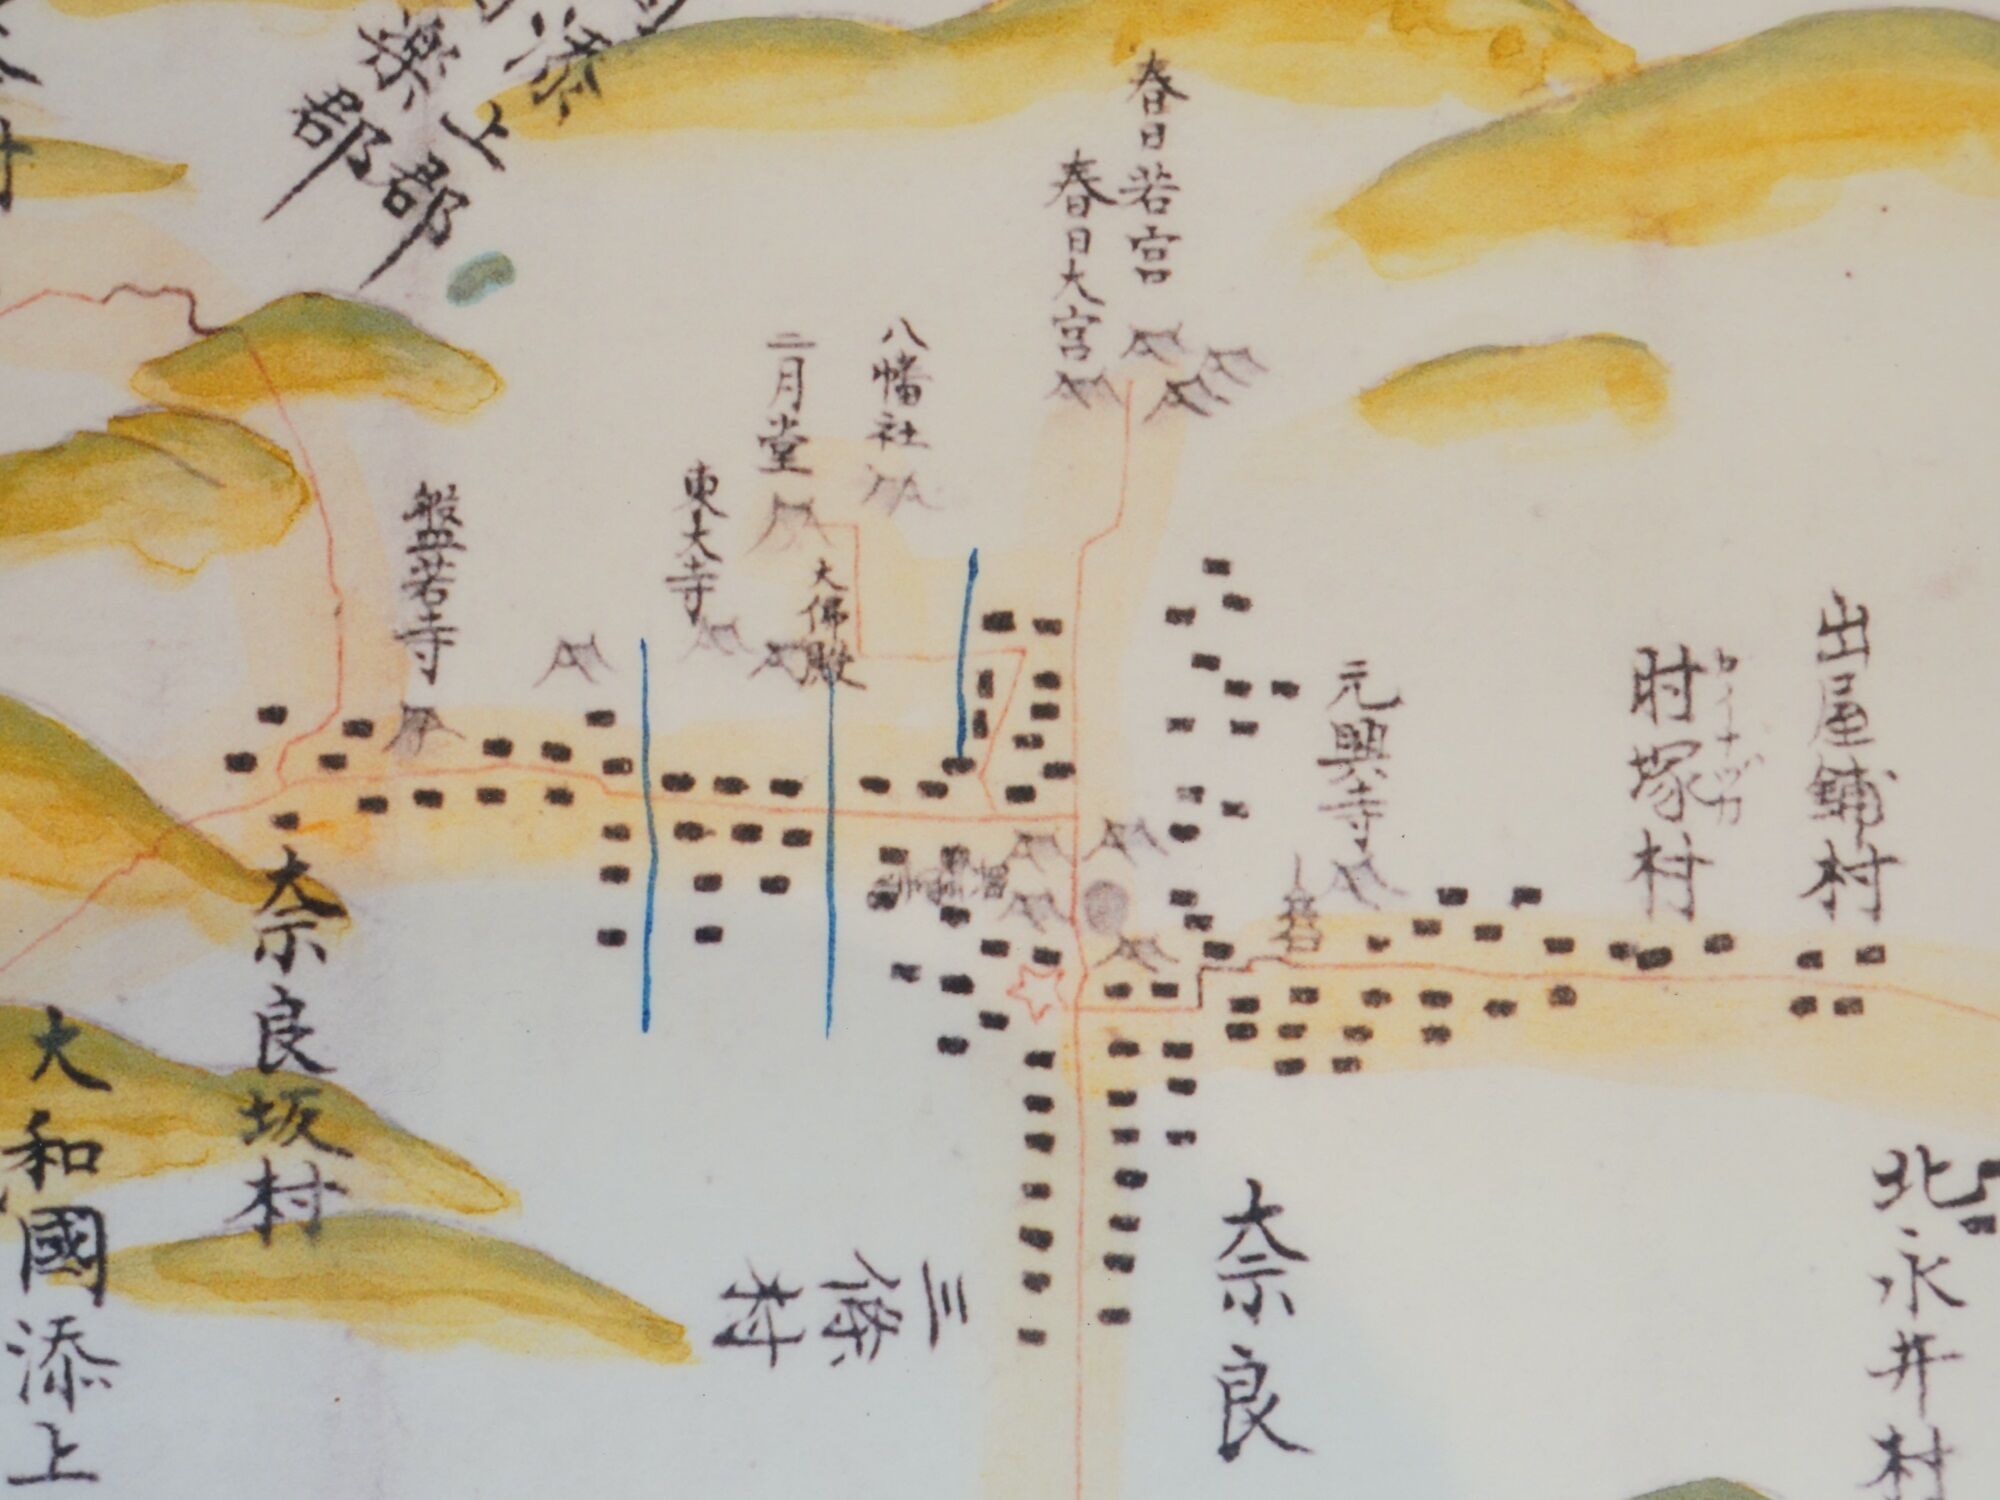 添上郡
樂
郡
春日若宮
春日大宮
八幡社
二月堂
大佛殿
東大寺
盤若寺
出屋鋪村
肘塚村
元興寺
奈良坂村
大和國添上
三條村
奈良
北永井村